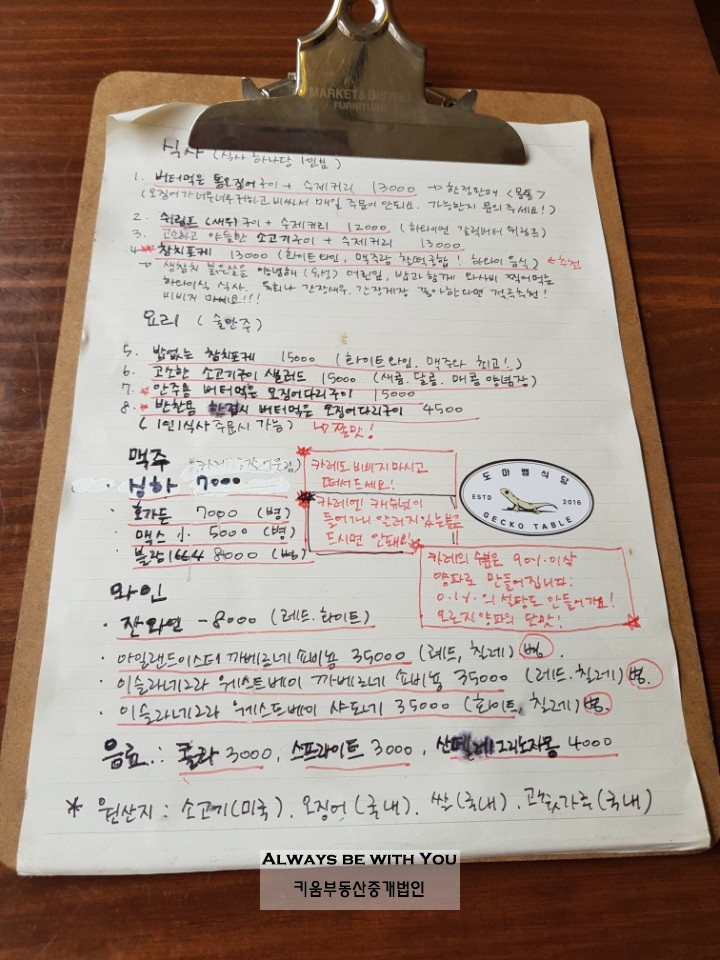 MARKET&BISTRO
FURNITURE
식사 (식사 하나당 1인분)
1. 버터먹은 통오징어구이 + 수제커리 13000 → 한정판매 <품절>
(오징어가 너무너무 귀하고 비싸서 매일 주문이 안되요. 가능한지 문의 주세요!)
2. 쉬림프 (새우)구이 + 수제커리 12000 (하와이언 갈릭버터 쉬림프)
3. 고소하고 야들한 소고기구이 + 수제커리 13000
4. 참치포케 13000 (화이트와인, 맥주랑 찰떡궁합! 하와이 음식) ← 추천
→ 생참치 붉은살을 양념해 (숙성) 어린잎, 밥과 함께 와사비 찍어먹는
하와이식 식사. 간장새우, 간장게장 좋아한다면 적극추천!
비비지 마세요!!!
요리 (술안주)
5. 밥없는 참치포케 15000 (화이트와인, 맥주와 최고!)
6. 고소한 소고기구이 샐러드 15000 (새콤. 달콤. 매콤 양념장)
7. 안주용 버터먹은 오징어다리구이 15000
8. 반찬용 버터먹은 오징어다리구이 4500
(1인1식사 주문시 가능) 짱맛!
맥주
· 싱하 7000
· 호가든 7000 (병)
· 맥스 小 5000 (병)
· 블랑1664 8000 (병)
카레도 비비지 마시고
떠서드세요!
카레엔 캐슈넛이
들어가니 알러지있는분은
드시면 안돼요
도마뱀식당
ESTD 2016
GECKO TABLE
카레의 수분은 90% 이상
양파로 만들어집니다.
0.1%의 설탕도 안들어가요!
오로지 양파의 단맛!
와인
· 잔와인 - 8000 (레드. 화이트)
· 아일랜드이스터 까베르네 쇼비뇽 35000 (레드, 칠레) 병.
· 이슬라네그라 웨스트베이 까베르네 쇼비뇽 35000 (레드. 칠레) 병.
· 이슬라네그라 웨스트베이 샤도네 35000 (화이트, 칠레) 병.
음료 : 콜라 3000, 스프라이트 3000, 산펠레그리노자몽 4000
* 원산지 : 소고기(미국). 오징어(국내). 쌀(국내). 고춧가루(국내)
ALWAYS BE WITH YOU
키움부동산중개법인